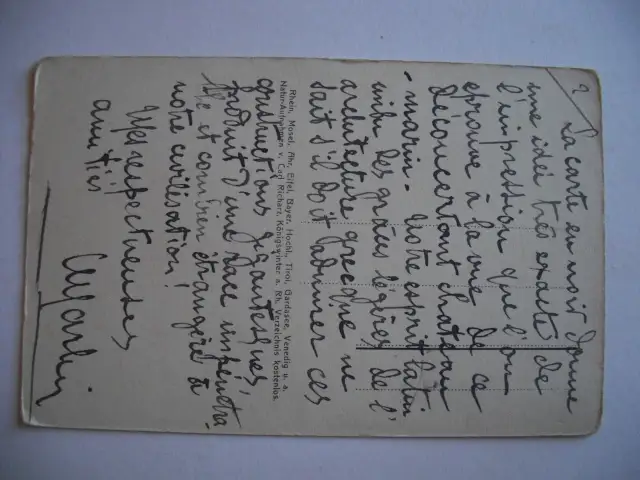 2
La carte en noir donne
une idée très exacte de
l'impression que l'on
éprouve à la vue de ce
déconcertant chateau
-marin. Notre esprit latin
imbu des grâces légères de l'
architecture grecque ne
sait s'il doit admirer ces
Rhein, Mosel, Ahr, Eifel, Bayer. Hochl., Tirol, Gardasee, Venedig u. a.
Natur-Aufnahmen v. Carl Richarz, Königswinter a. Rh. Verzeichnis kostenlos.
constructions gigantesques,
produit d'une race impénétra-
ble et combien étrangère à
notre civilisation!
Mes respectueuses
amitiés